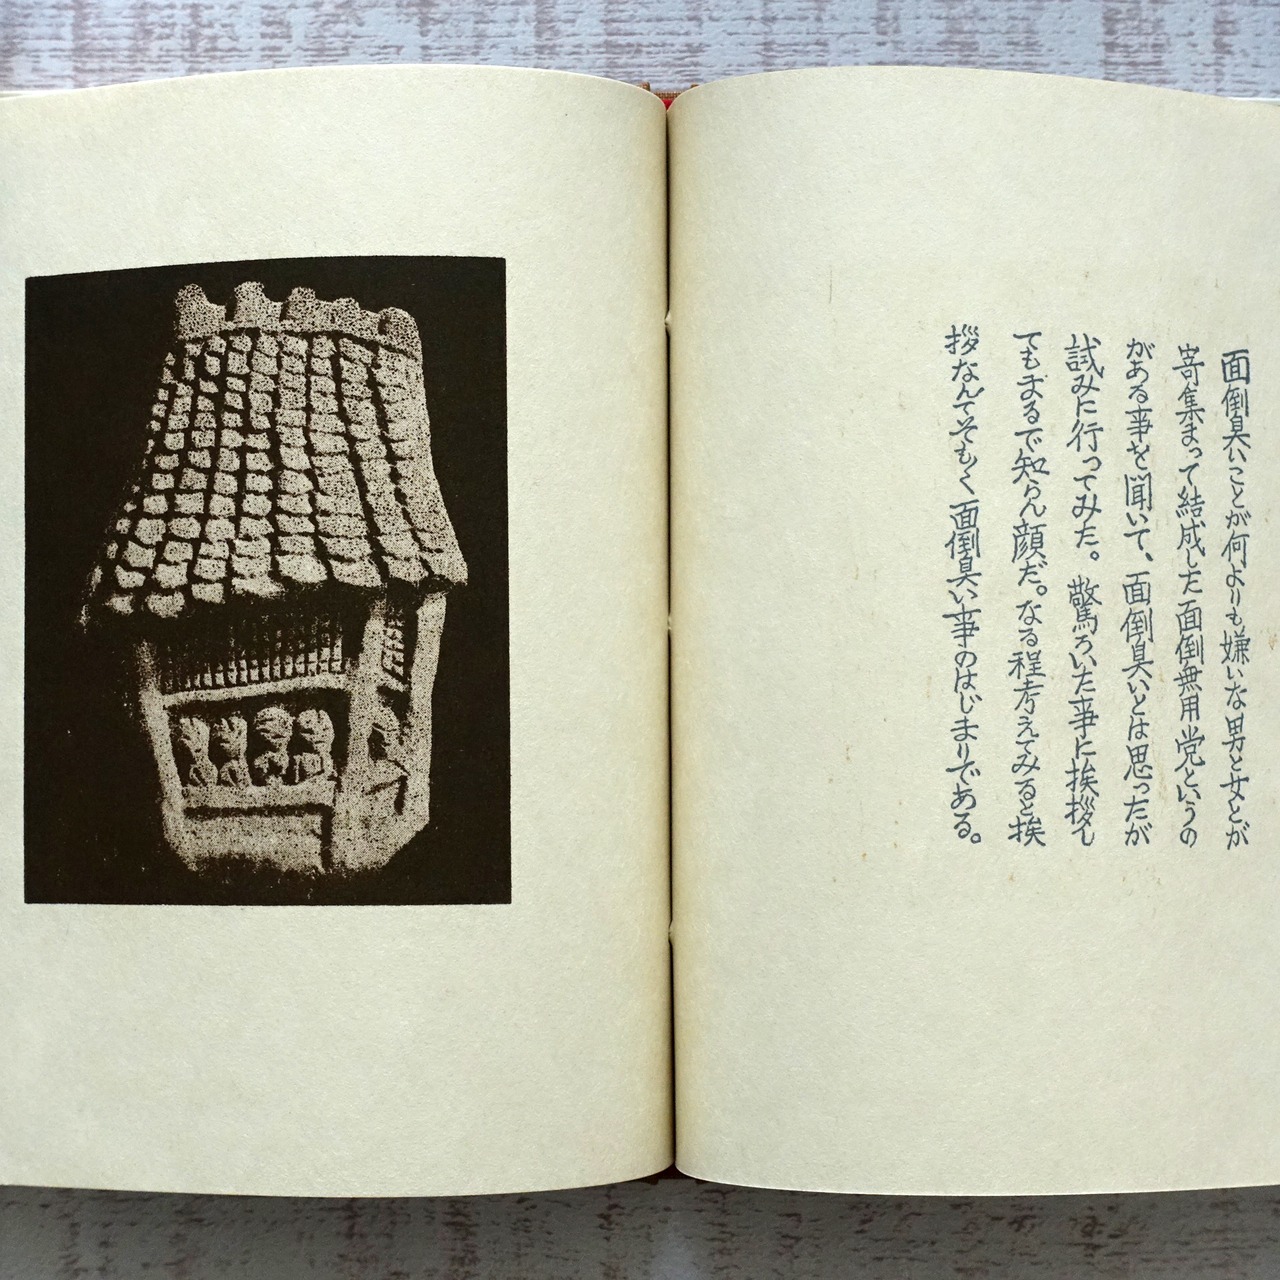 面倒臭いことが何よりも嫌いな男と女とが
寄集まって結成した面倒無用党というの
がある事を聞いて、面倒臭いとは思ったが
試みに行ってみた。驚ろいた事に挨拶し
てもまるで知らん顔だ。なる程考えてみると挨
拶なんてそもそも面倒臭い事のはじまりである。